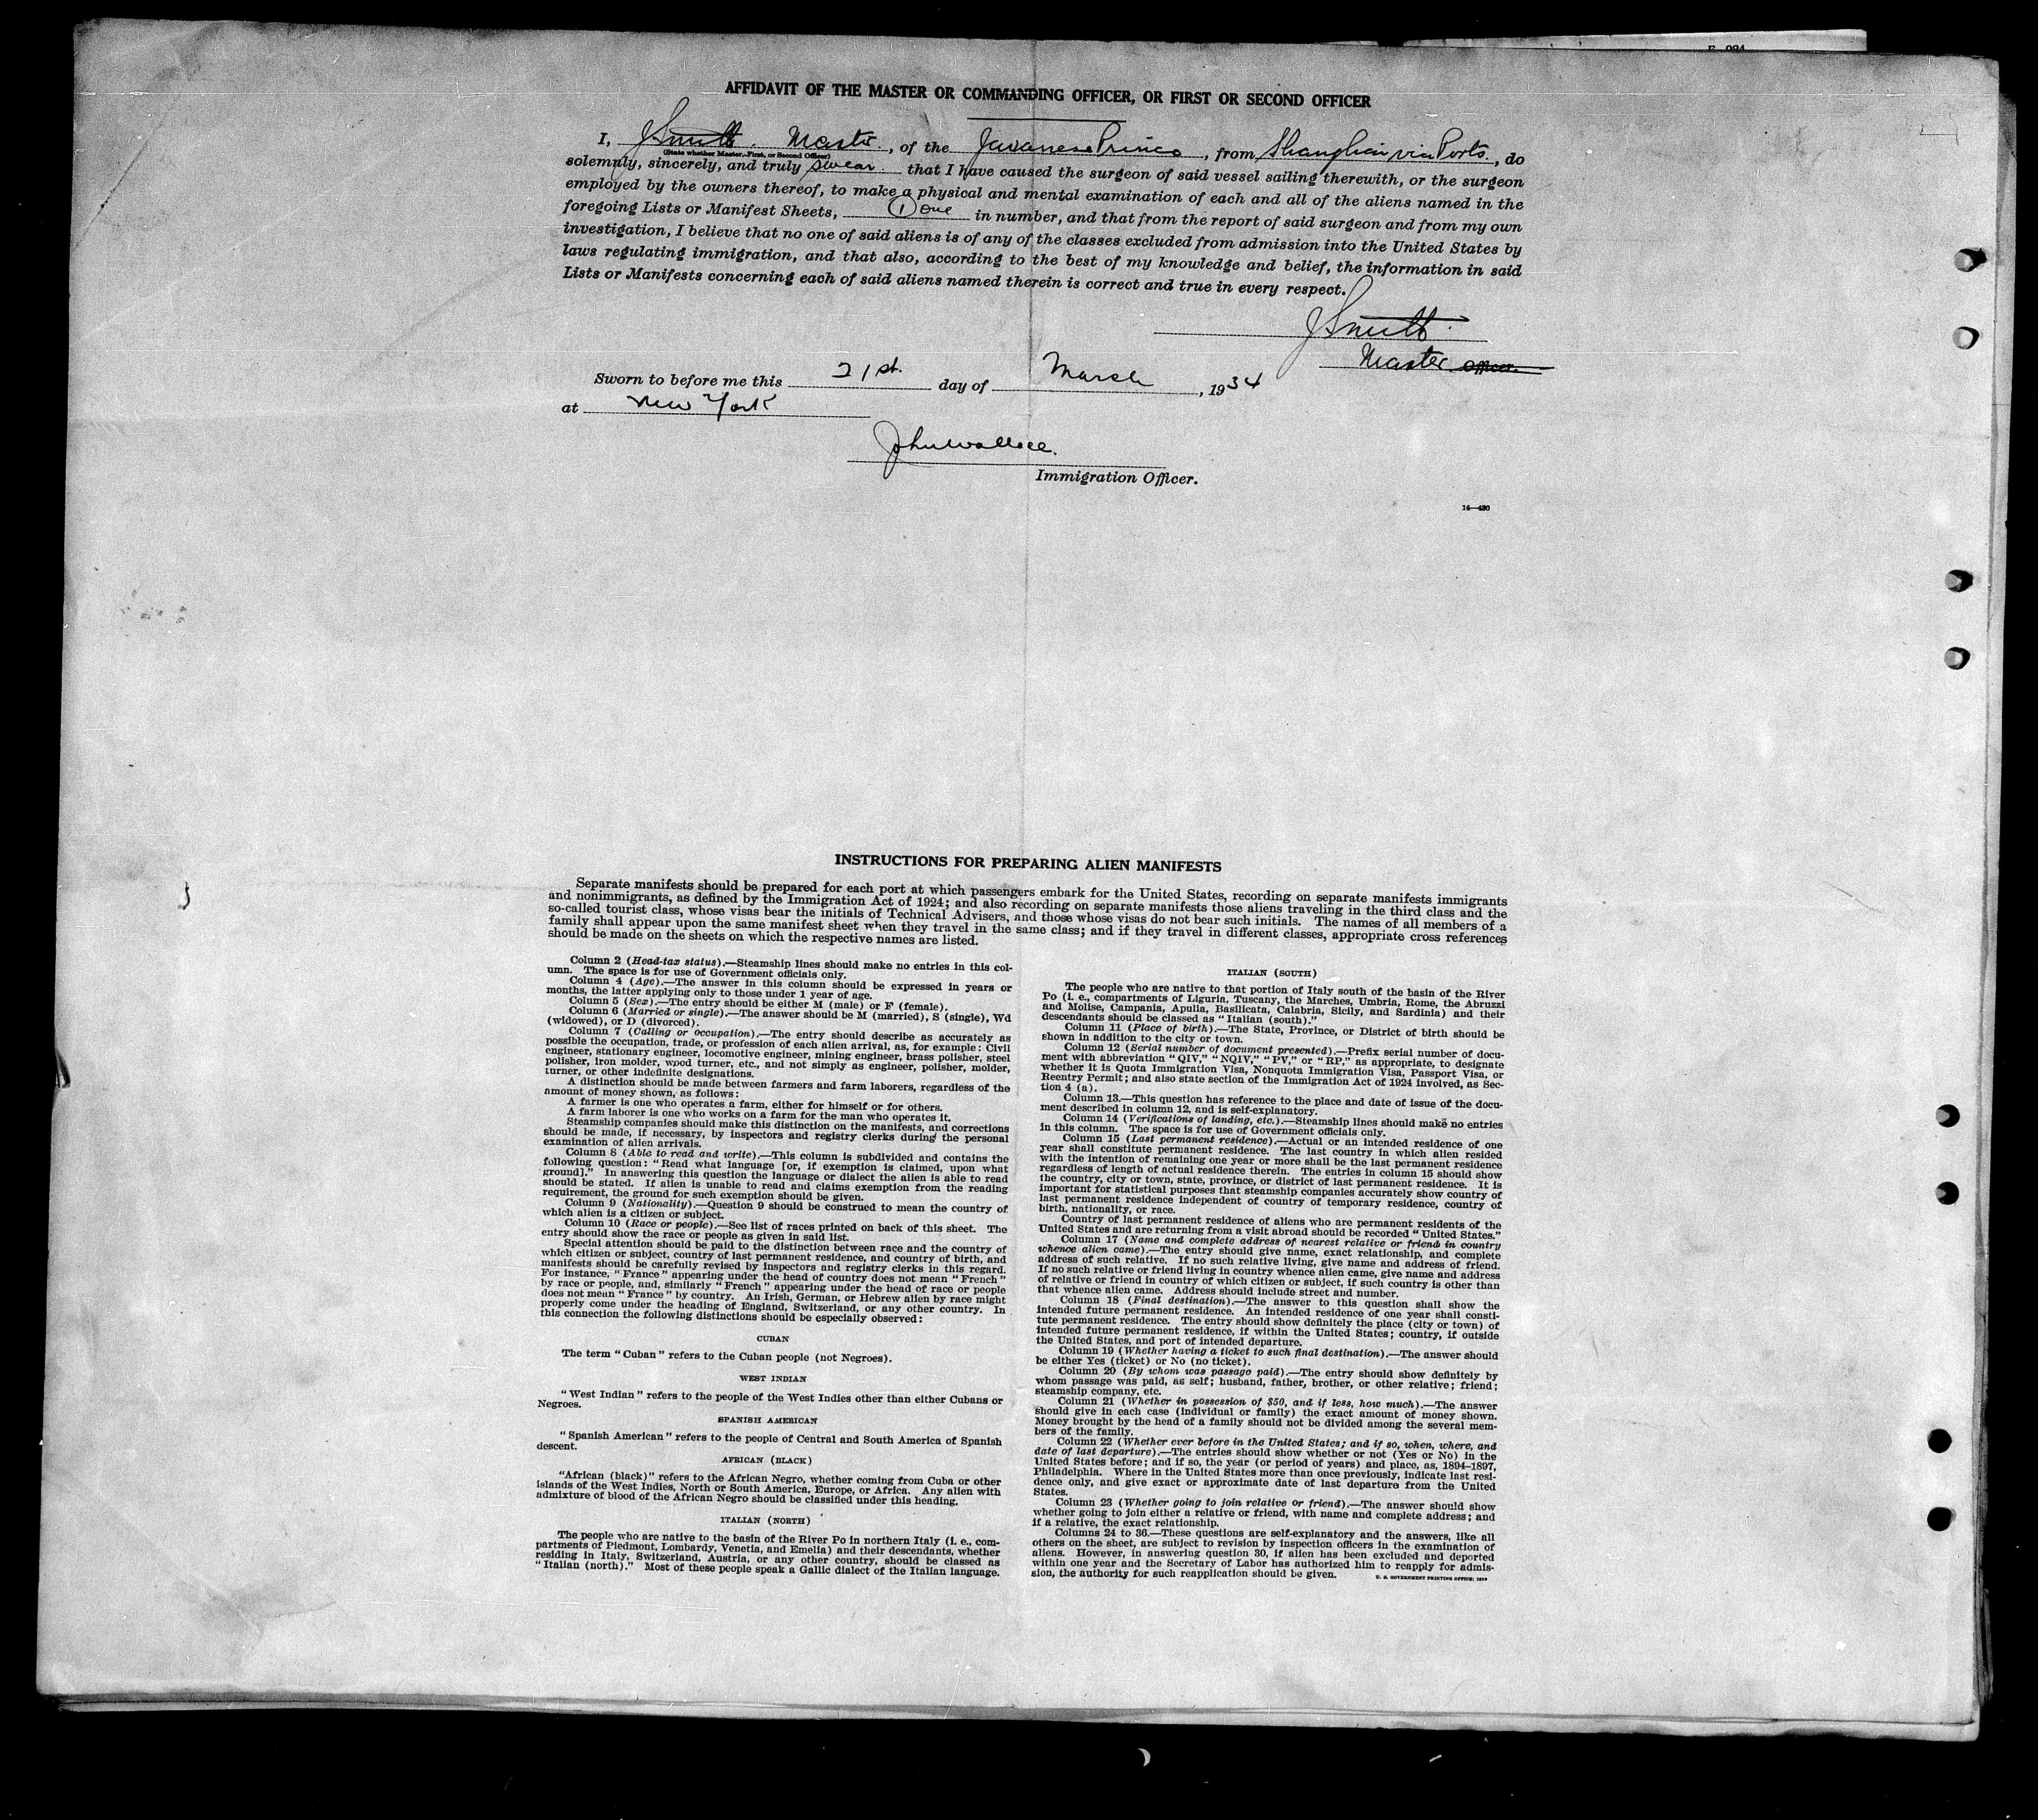 AFFIDAVIT OF THE MASTER OR COMMANDING OFFICER, OR FIRST OR SECOND OFFICER
I, J Smith. Master., of the Javanese Prince, from Shanghai via Ports, do
(State whether Master, First, or Second Officer)
solemnly, sincerely, and truly swear that I have caused the surgeon of said vessel sailing therewith, or the surgeon
employed by the owners thereof, to make a physical and mental examination of each and all of the aliens named in the
foregoing Lists or Manifest Sheets, (1) one in number, and that from the report of said surgeon and from my own
investigation, I believe that no one of said aliens is of any of the classes excluded from admission into the United States by
laws regulating immigration, and that also, according to the best of my knowledge and belief, the information in said
Lists or Manifests concerning each of said aliens named therein is correct and true in every respect.
J Smith.
Master Officer.
Sworn to before me this 21st. day of March, 1934
at New York
John Wallace.
Immigration Officer.
14—430
INSTRUCTIONS FOR PREPARING ALIEN MANIFESTS
Separate manifests should be prepared for each port at which passengers embark for the United States, recording on separate manifests immigrants
and nonimmigrants, as defined by the Immigration Act of 1924; and also recording on separate manifests those aliens traveling in the third class and the
so-called tourist class, whose visas bear the initials of Technical Advisers, and those whose visas do not bear such initials. The names of all members of a
family shall appear upon the same manifest sheet when they travel in the same class; and if they travel in different classes, appropriate cross references
should be made on the sheets on which the respective names are listed.
Column 2 (Head-tax status).—Steamship lines should make no entries in this col-
umn. The space is for use of Government officials only.
Column 4 (Age).—The answer in this column should be expressed in years or
months, the latter applying only to those under 1 year of age.
Column 5 (Sex).—The entry should be either M (male) or F (female).
Column 6 (Married or single).—The answer should be M (married), S (single), Wd
(widowed), or D (divorced).
Column 7 (Calling or occupation).—The entry should describe as accurately as
possible the occupation, trade, or profession of each alien arrival, as, for example: Civil
engineer, stationary engineer, locomotive engineer, mining engineer, brass polisher, steel
polisher, iron molder, wood turner, etc., and not simply as engineer, polisher, molder,
turner, or other indefinite designations.
A distinction should be made between farmers and farm laborers, regardless of the
amount of money shown, as follows:
A farmer is one who operates a farm, either for himself or for others.
A farm laborer is one who works on a farm for the man who operates it.
Steamship companies should make this distinction on the manifests, and corrections
should be made, if necessary, by inspectors and registry clerks during the personal
examination of alien arrivals.
Column 8 (Able to read and write).—This column is subdivided and contains the
following question: "Read what language [or, if exemption is claimed, upon what
ground]." In answering this question the language or dialect the alien is able to read
should be stated. If alien is unable to read and claims exemption from the reading
requirement, the ground for such exemption should be given.
Column 9 (Nationality).—Question 9 should be construed to mean the country of
which alien is a citizen or subject.
Column 10 (Race or people).—See list of races printed on back of this sheet. The
entry should show the race or people as given in said list.
Special attention should be paid to the distinction between race and the country of
which citizen or subject, country of last permanent residence, and country of birth, and
manifests should be carefully revised by inspectors and registry clerks in this regard.
For instance, "France" appearing under the head of country does not mean "French"
by race or people, and, similarly "French" appearing under the head of race or people
does not mean "France" by country. An Irish, German, or Hebrew alien by race might
properly come under the heading of England, Switzerland, or any other country. In
this connection the following distinctions should be especially observed:
CUBAN
The term "Cuban" refers to the Cuban people (not Negroes).
WEST INDIAN
"West Indian" refers to the people of the West Indies other than either Cubans or
Negroes.
SPANISH AMERICAN
"Spanish American" refers to the people of Central and South America of Spanish
descent.
AFRICAN (BLACK)
"African (black)" refers to the African Negro, whether coming from Cuba or other
islands of the West Indies, North or South America, Europe, or Africa. Any alien with
admixture of blood of the African Negro should be classified under this heading.
ITALIAN (NORTH)
The people who are native to the basin of the River Po in northern Italy (i. e., com-
partments of Piedmont, Lombardy, Venetia, and Emelia) and their descendants, whether
residing in Italy, Switzerland, Austria, or any other country, should be classed as
"Italian (north)." Most of these people speak a Gallic dialect of the Italian language.
ITALIAN (SOUTH)
The people who are native to that portion of Italy south of the basin of the River
Po (i. e., compartments of Liguria, Tuscany, the Marches, Umbria, Rome, the Abruzzi
and Molise, Campania, Apulia, Basilicata, Calabria, Sicily, and Sardinia) and their
descendants should be classed as "Italian (south)."
Column 11 (Place of birth).—The State, Province, or District of birth should be
shown in addition to the city or town.
Column 12 (Serial number of document presented).—Prefix serial number of docu-
ment with abbreviation "QIV," "NQIV," "PV," or "RP," as appropriate, to designate
whether it is Quota Immigration Visa, Nonquota Immigration Visa, Passport Visa, or
Reentry Permit; and also state section of the Immigration Act of 1924 involved, as Sec-
tion 4 (a).
Column 13.—This question has reference to the place and date of issue of the docu-
ment described in column 12, and is self-explanatory.
Column 14 (Verifications of landing, etc.).—Steamship lines should make no entries
in this column. The space is for use of Government officials only.
Column 15 (Last permanent residence).—Actual or an intended residence of one
year shall constitute permanent residence. The last country in which alien resided
with the intention of remaining one year or more shall be the last permanent residence
regardless of length of actual residence therein. The entries in column 15 should show
the country, city or town, state, province, or district of last permanent residence. It is
important for statistical purposes that steamship companies accurately show country of
last permanent residence independent of country of temporary residence, country of
birth, nationality, or race.
Country of last permanent residence of aliens who are permanent residents of the
United States and are returning from a visit abroad should be recorded "United States."
Column 17 (Name and complete address of nearest relative or friend in country
whence alien came).—The entry should give name, exact relationship, and complete
address of such relative. If no such relative living, give name and address of friend.
If no such relative or friend living in country whence alien came, give name and address
of relative or friend in country of which citizen or subject, if such country is other than
that whence alien came. Address should include street and number.
Column 18 (Final destination).—The answer to this question shall show the
intended future permanent residence. An intended residence of one year shall consti-
tute permanent residence. The entry should show definitely the place (city or town) of
intended future permanent residence, if within the United States; country, if outside
the United States, and port of intended departure.
Column 19 (Whether having a ticket to such final destination).—The answer should
be either Yes (ticket) or No (no ticket).
Column 20 (By whom was passage paid).—The entry should show definitely by
whom passage was paid, as self; husband, father, brother, or other relative; friend;
steamship company, etc.
Column 21 (Whether in possession of $50, and if less, how much).—The answer
should give in each case (individual or family) the exact amount of money shown.
Money brought by the head of a family should not be divided among the several mem-
bers of the family.
Column 22 (Whether ever before in the United States; and if so, when, where, and
date of last departure).—The entries should show whether or not (Yes or No) in the
United States before; and if so, the year (or period of years) and place, as, 1894–1897,
Philadelphia. Where in the United States more than once previously, indicate last resi-
dence only, and give exact or approximate date of last departure from the United
States.
Column 23 (Whether going to join relative or friend).—The answer should show
whether going to join either a relative or friend, with name and complete address; and
if a relative, the exact relationship.
Columns 24 to 36.—These questions are self-explanatory and the answers, like all
others on the sheet, are subject to revision by inspection officers in the examination of
aliens. However, in answering question 30, if alien has been excluded and deported
within one year and the Secretary of Labor has authorized him to reapply for admis-
sion, the authority for such reapplication should be given.
U. S. GOVERNMENT PRINTING OFFICE: